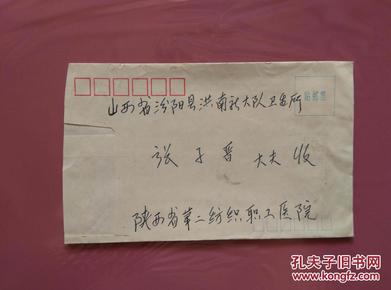 贴邮票
山西省汾阳县洪南社大队卫生所
张子晋 大夫收
陕西省第二纺织职工医院
孔夫子旧书网